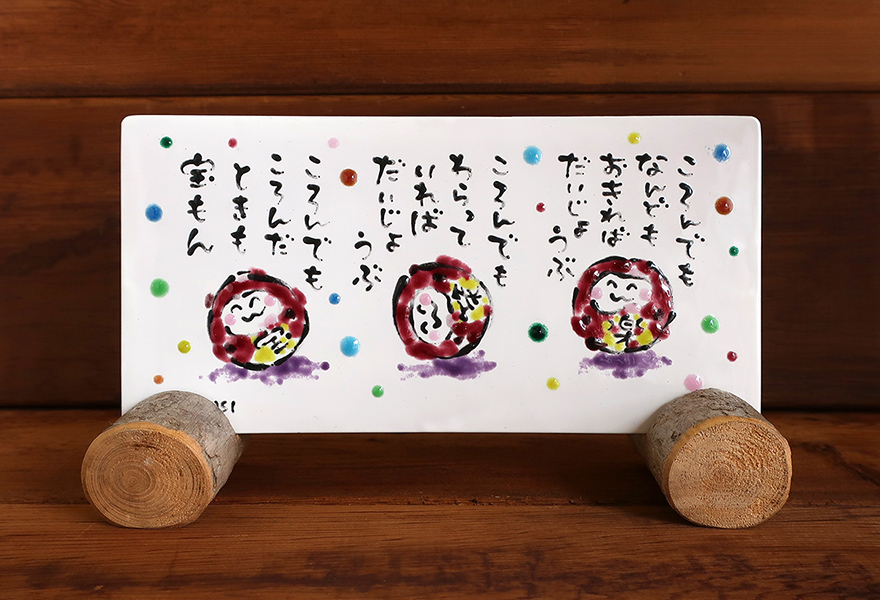 ころんでも
なんども
おきれば
だいじょ
うぶ
ころんでも
わらって
いれば
だいじょ
うぶ
ころんでも
ころんだ
ときも
宝もん